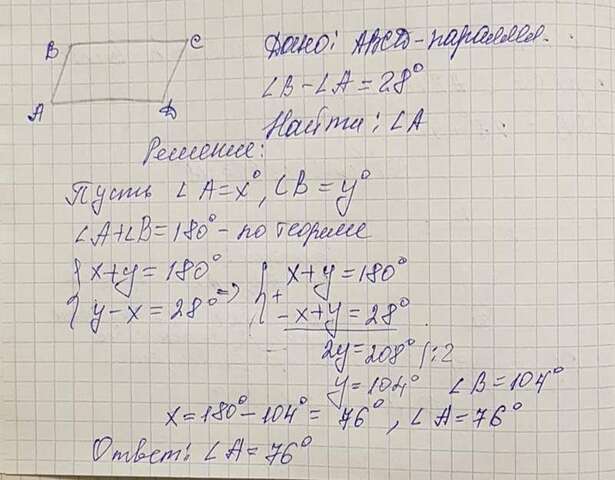 B C
A D
Дано: ABCD-паралл.
∠B-∠A=28°
Найти: ∠A
Решение:
Пусть ∠A=x°, ∠B=y°
∠A+∠B=180°- по теореме
{ x+y=180° => { x+y=180°
{ y-x=28° + -x+y=28°
2y=208° |:2
y=104° ∠B=104°
x=180°-104°=76°, ∠A=76°
Ответ: ∠A=76°